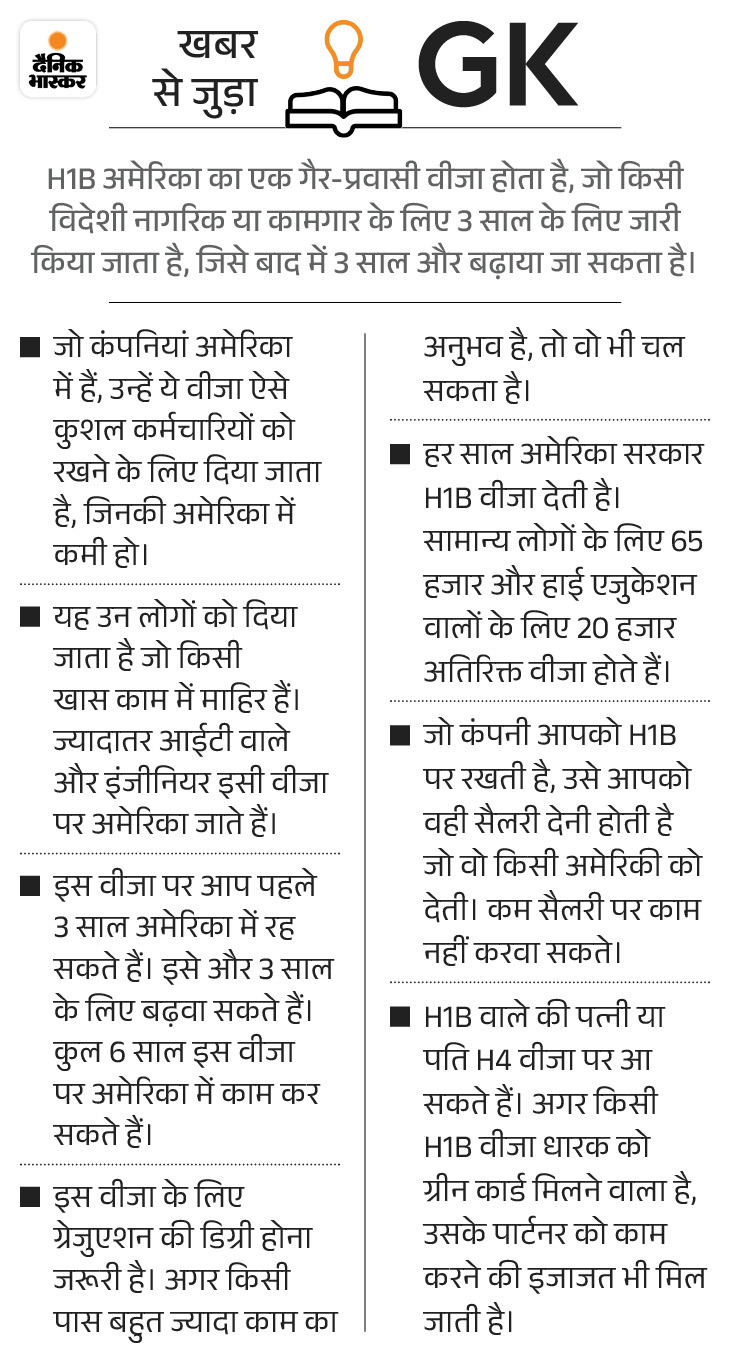 दैनिक
भास्कर
खबर
से जुड़ा
GK
H1B अमेरिका का एक गैर-प्रवासी वीजा होता है, जो किसी
विदेशी नागरिक या कामगार के लिए 3 साल के लिए जारी
किया जाता है, जिसे बाद में 3 साल और बढ़ाया जा सकता है।
■ जो कंपनियां अमेरिका
में हैं, उन्हें ये वीजा ऐसे
कुशल कर्मचारियों को
रखने के लिए दिया जाता
है, जिनकी अमेरिका में
कमी हो।
■ यह उन लोगों को दिया
जाता है जो किसी
खास काम में माहिर हैं।
ज्यादातर आईटी वाले
और इंजीनियर इसी वीजा
पर अमेरिका जाते हैं।
■ इस वीजा पर आप पहले
3 साल अमेरिका में रह
सकते हैं। इसे और 3 साल
के लिए बढ़वा सकते हैं।
कुल 6 साल इस वीजा
पर अमेरिका में काम कर
सकते हैं।
■ इस वीजा के लिए
ग्रेजुएशन की डिग्री होना
जरूरी है। अगर किसी
पास बहुत ज्यादा काम का
अनुभव है, तो वो भी चल
सकता है।
■ हर साल अमेरिका सरकार
H1B वीजा देती है।
सामान्य लोगों के लिए 65
हजार और हाई एजुकेशन
वालों के लिए 20 हजार
अतिरिक्त वीजा होते हैं।
■ जो कंपनी आपको H1B
पर रखती है, उसे आपको
वही सैलरी देनी होती है
जो वो किसी अमेरिकी को
देती। कम सैलरी पर काम
नहीं करवा सकते।
■ H1B वाले की पत्नी या
पति H4 वीजा पर आ
सकते हैं। अगर किसी
H1B वीजा धारक को
ग्रीन कार्ड मिलने वाला है,
उसके पार्टनर को काम
करने की इजाजत भी मिल
जाती है।